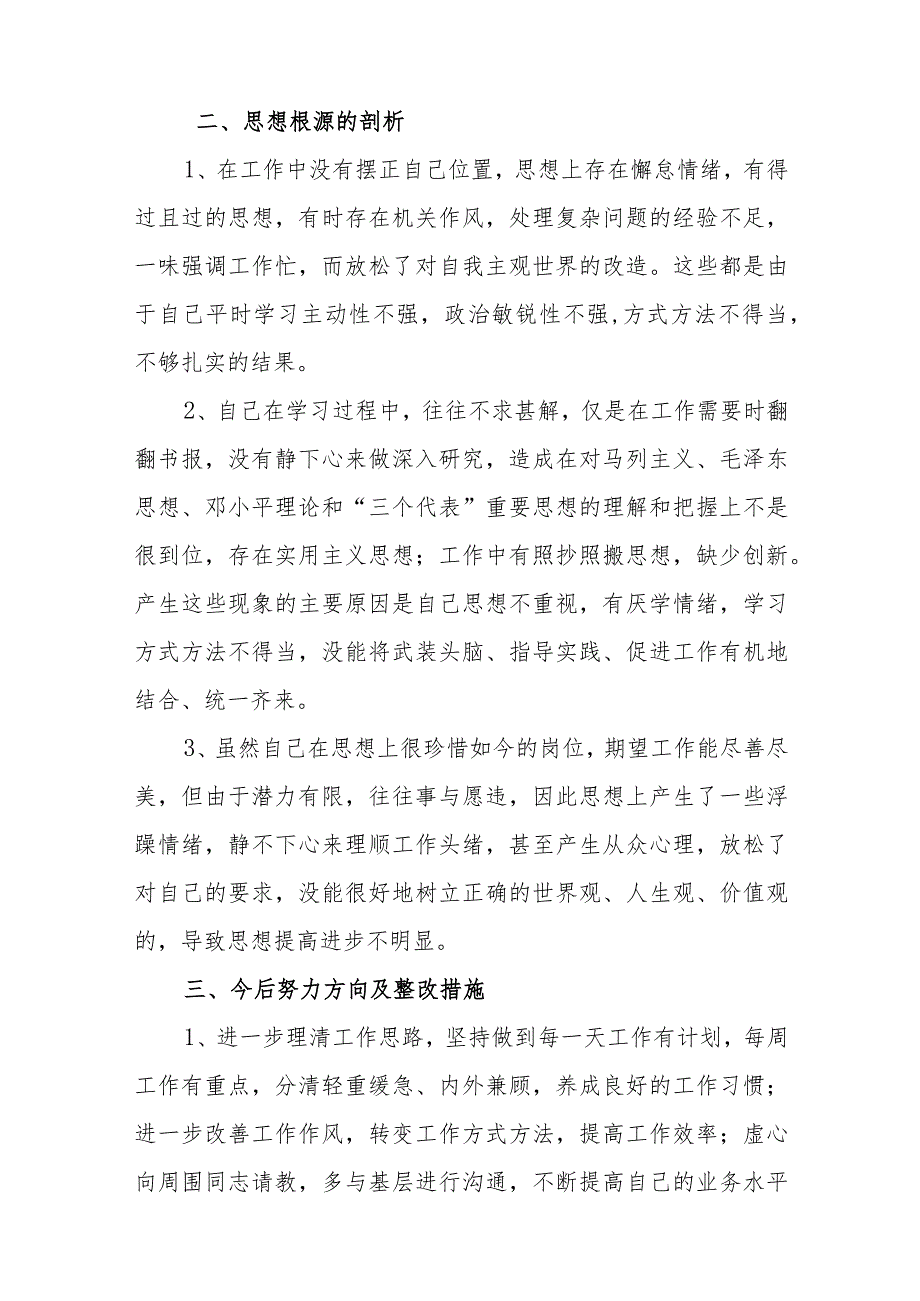 二、思想根源的剖析
1、在工作中没有摆正自己位置，思想上存在懈怠情绪，有得
过且过的思想，有时存在机关作风，处理复杂问题的经验不足，
一味强调工作忙，而放松了对自我主观世界的改造。这些都是由
于自己平时学习主动性不强，政治敏锐性不强,方式方法不得当，
不够扎实的结果。
2、自己在学习过程中，往往不求甚解，仅是在工作需要时翻
翻书报，没有静下心来做深入研究，造成在对马列主义、毛泽东
思想、邓小平理论和“三个代表”重要思想的理解和把握上不是
很到位，存在实用主义思想；工作中有照抄照搬思想，缺少创新。
产生这些现象的主要原因是自己思想不重视，有厌学情绪，学习
方式方法不得当，没能将武装头脑、指导实践、促进工作有机地
结合、统一齐来。
3、虽然自己在思想上很珍惜如今的岗位，期望工作能尽善尽
美，但由于潜力有限，往往事与愿违，因此思想上产生了一些浮
躁情绪，静不下心来理顺工作头绪，甚至产生从众心理，放松了
对自己的要求，没能很好地树立正确的世界观、人生观、价值观
的，导致思想提高进步不明显。
三、今后努力方向及整改措施
1、进一步理清工作思路，坚持做到每一天工作有计划，每周
工作有重点，分清轻重缓急、内外兼顾，养成良好的工作习惯；
进一步改善工作作风，转变工作方式方法，提高工作效率；虚心
向周围同志请教，多与基层进行沟通，不断提高自己的业务水平